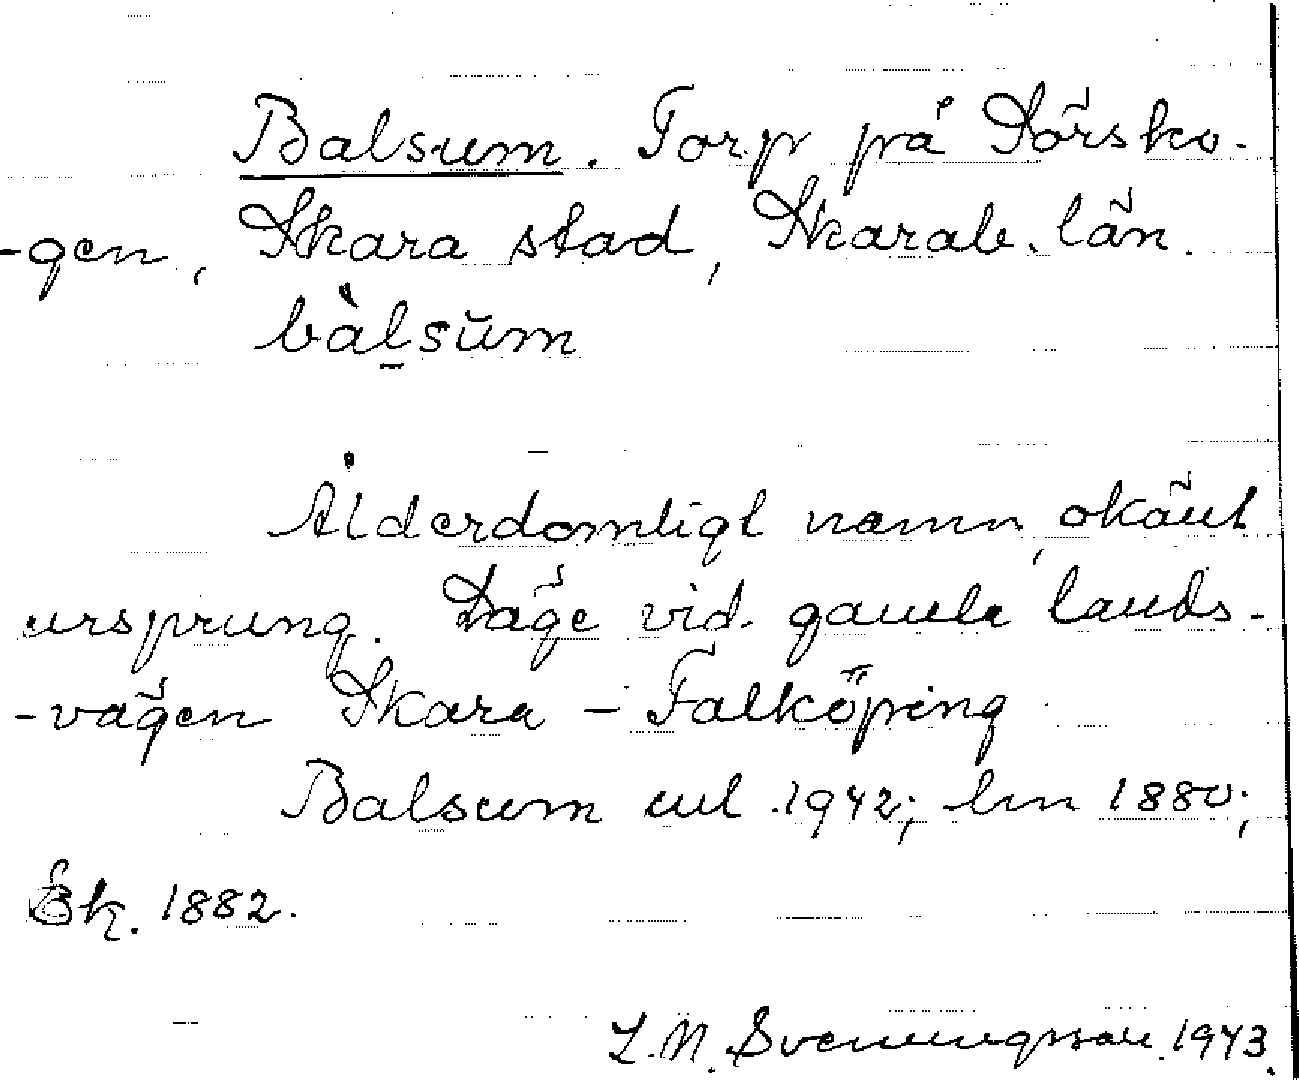 Balsum. Torp på Sörsko-
-gen, Skara stad, Skarab. län.
bàl̠sŭm
Ålderdomligt namn, okänt
ursprung. Läge vid gamla lands-
-vägen Skara - Falköping
Balsum utl 1942; hm 1880;
Ek. 1882.
L.N. Svenungsson. 1943.